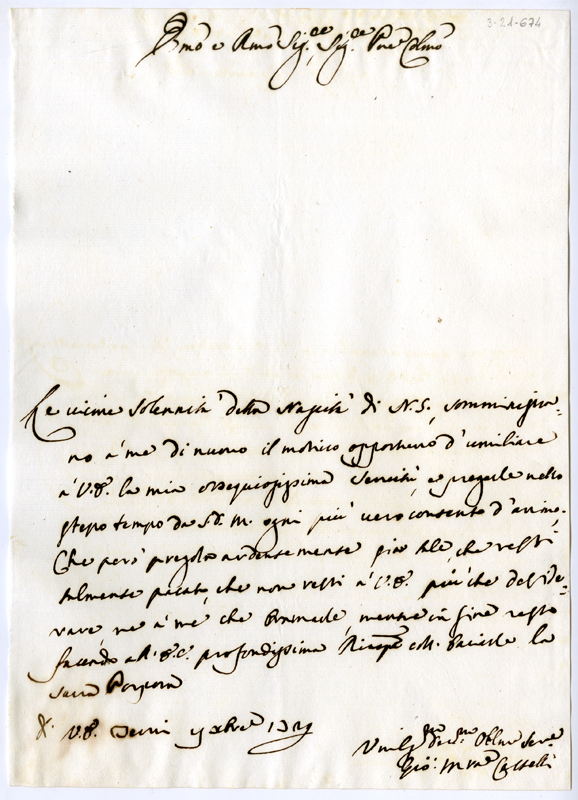 3-21-674
Emo e Rmo Sig.re Sig.re Pne Colmo
Le vicine solennità della Nascità di N.S. somministra-
no à me di nuovo il motivo opportuno d'umiliare
à V.E. la mia ossequiosissima servitù, e pregarle nello
stesso tempo da S.D.M. ogni più vero contento d'animo.
Che però pregolo ardentemente sia tale, che resti
talmente pacato, che non resti à V.E. più che deside-
rare, ne à me che bramarle, mentre in fine resto
facendo a V.E. profondissima col baciarle la
sacra Porpora
Di V.E. Terni 9bre
Umil.mo Dev.mo Obl.mo Ser.e
Gio: M.ria Castelli